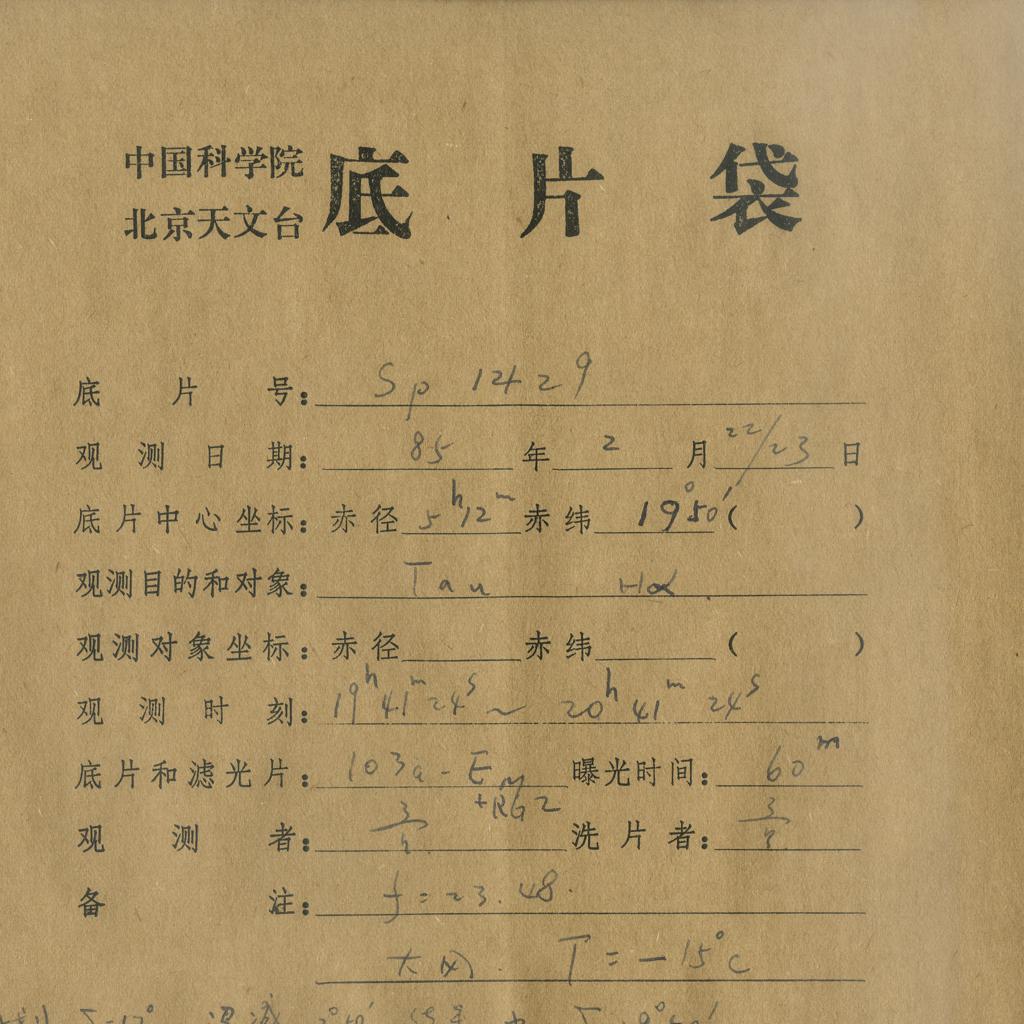 中国科学院
北京天文台
底片袋
底片号: Sp 1429
观测日期: 85年2月22/23日
底片中心坐标: 赤径 5h12m 赤纬 19°50′( )
观测目的和对象: Tau Hα.
观测对象坐标: 赤径 赤纬 ( )
观测时刻: 19h41m24s ~ 20h41m24s
底片和滤光片: 103a-E 曝光时间: 60m
+RG2
观测者: 洗片者:
备注: f=23.48.
大风. T=-15°C